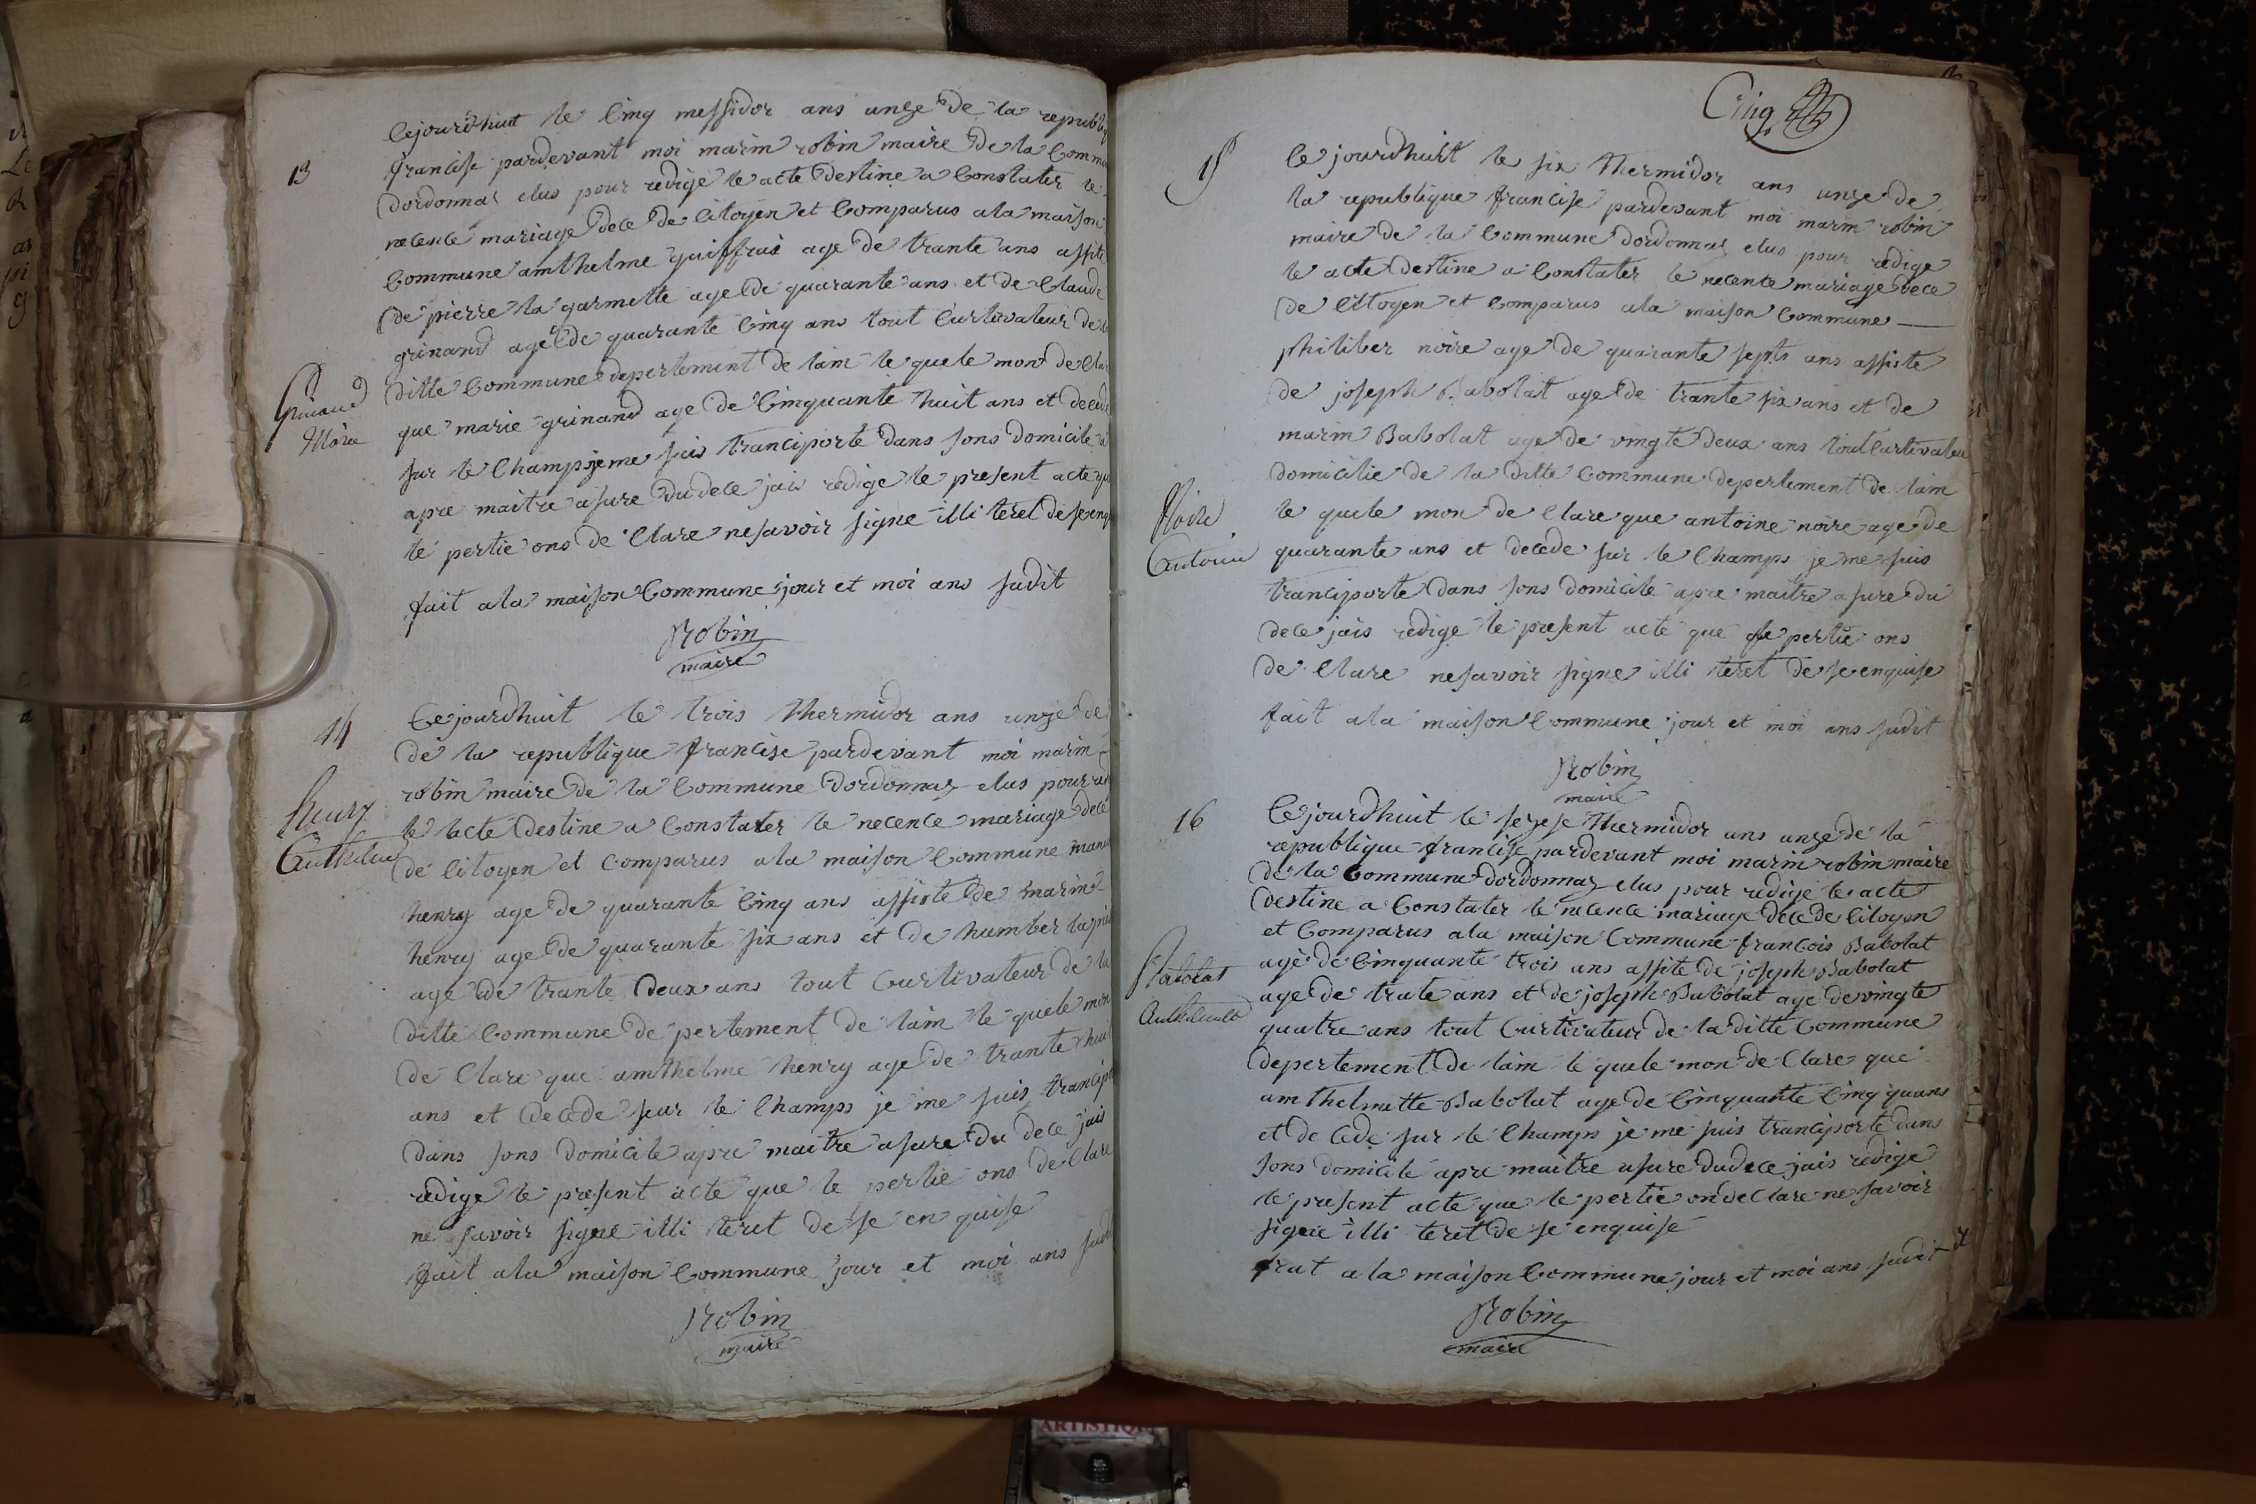 13
Cejourdhuit le Cinq messidor ans unze de la republiq
francise pardevant moi marin robin maire de la Commu
dordonnas elus pour redige le acte destine a Constater le
necence mariage dece de Citoyen et Comparus a la maison
Commune amthelme guiffrai age de trante ans assite
de pierre la garmette age de quarante ans et de Claude
grinand age de quarante Cinq ans tout Curtivateur de la
ditte Commune depertement de lain le quele mon de Clar
que marie grinand age de Cinquante huit ans et decede
sur le Champs je me suis tranciporte dans sons domicile a
apre maitre asure du dece jais redige le present acte que
le pertie ons de Clare ne savoir signe illi teret de se enqui
fait a la maison Commune jour et moi ans sudit
Robin
maire
Grinand
Marie
14
Cejourdhuit le trois thermidor ans unze de
de la republique francise pardevant moi marin
robin maire de la Commune dordonnas elus pour red
le lacte destine a Constater le necence mariage dece
de Citoyen et Comparus a la maison Commune
henry age de quarante Cinq ans assiste de marin
henry age de quarante six ans et de humber
age de trante deux ans tout Curtivateur de la
ditte Commune de pertement de lain le quele mon
de Clare que amthelme henry age de trante huit
ans et decede sur le Champs je me suis trancipo
dans sons domicile apre maitre asure du dece jais
redige le present acte que le pertie ons de Clare
ne savoir signe illi teret de se en quise
fait a la maison Commune jour et moi ans sudit
Robin
maire
henry
Anthelme
Cinq
15
Ce jourdhuit le six thermidor ans unze de
la republique francise pardevant moi marin robin
maire de la Commune dordonnas elus pour redige
le acte destine a Constater le necence mariage dece
de Citoyen et Comparus a la maison Commune
philiber noire age de quarante septs ans assiste
de joseph Babolat age de trante six ans et de
marin Babolat age de vingte deux ans tout Curtivateu
domicilie de la ditte Commune depertement de lain
le quele mon de Clare que antoine noire age de
quarante ans et decede sur le Champs je me suis
tranciporte dans sons domicile apre maitre asure du
dece jais redige le present acte que le pertie ons
de Clare ne savoir signe illi teret de se enquise
fait a la maison Commune jour et moi ans sudit
Robin
maire
Noire
Antoine
16
Cejourdhuit le sezese thermidor ans unze de la
republique francise pardevant moi marin robin maire
de la Commune dordonnas elus pour redige le acte
destine a Constater le necence mariage dece de Citoyen
et Comparus a la maison Commune francois Babolat
age de Cinquante trois ans assite de joseph Babolat
age de trate ans et de joseph Babolat age de vingte
quatre ans tout Curtivateur de la ditte Commune
depertement de lain le quele mon de Clare que
amthelmette Babolat age de Cinquante Cinq quans
et de Cede sur le Champs je me suis tranciporte dans
sons domicile apre maitre asure du dece jais redige
le present acte que le pertie on de Clare ne savoir
signe illi teret de se enquise
frat a la maison Commune jour et moi ans sudit
Robin
maire
Babolat
ARTISTIQUE